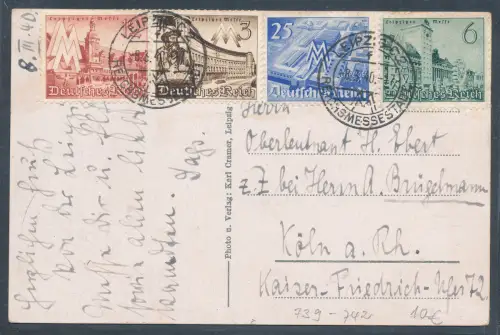 8. III. 40.
Leipziger Messe
Deutsches Reich
Leipziger Messe
3
Deutsches Reich
25
Leipziger Messe
Deutsches Reich
Leipziger Messe
6
Deutsches Reich
LEIPZIG
REICHSMESSESTADT
LEIPZIG
8.3.40
REICHSMESSESTADT
Herzlichen Gruß
von der Leipz.
Messe Dir u.
sowie allen lieben
Photo u. Verlag: Karl Cramer, Leipzig
Herrn
Oberleutnant H. Ebert
z. Z. bei Herrn A. Brügelmann
Köln a. Rh.
Kaiser-Friedrich-Ufer 72
739 - 742
10€